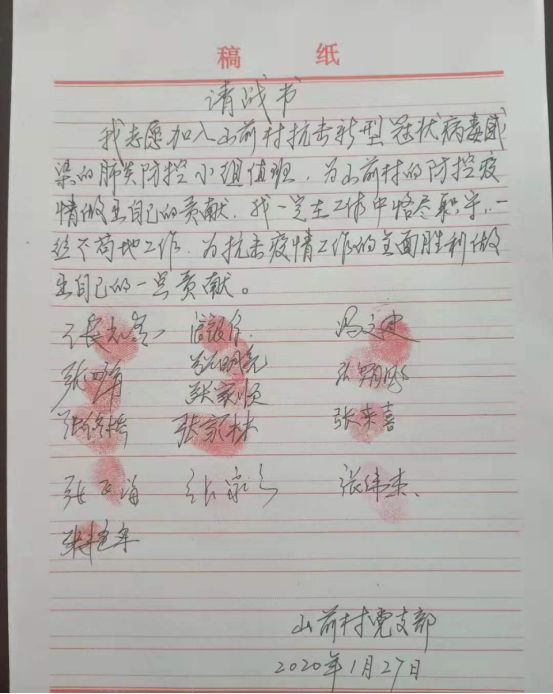 稿 纸
请战书
我志愿加入山前村抗击新型冠状病毒感
染的肺炎防控小组值班，为山前村的防控疫
情做出自己的贡献，我一定在工作中恪尽职守，一
丝不苟地工作，为抗击疫情工作的全面胜利做
出自己的一点贡献。
张家顺
张家林 张来喜
张伟杰、
山前村党支部
2020年1月27日